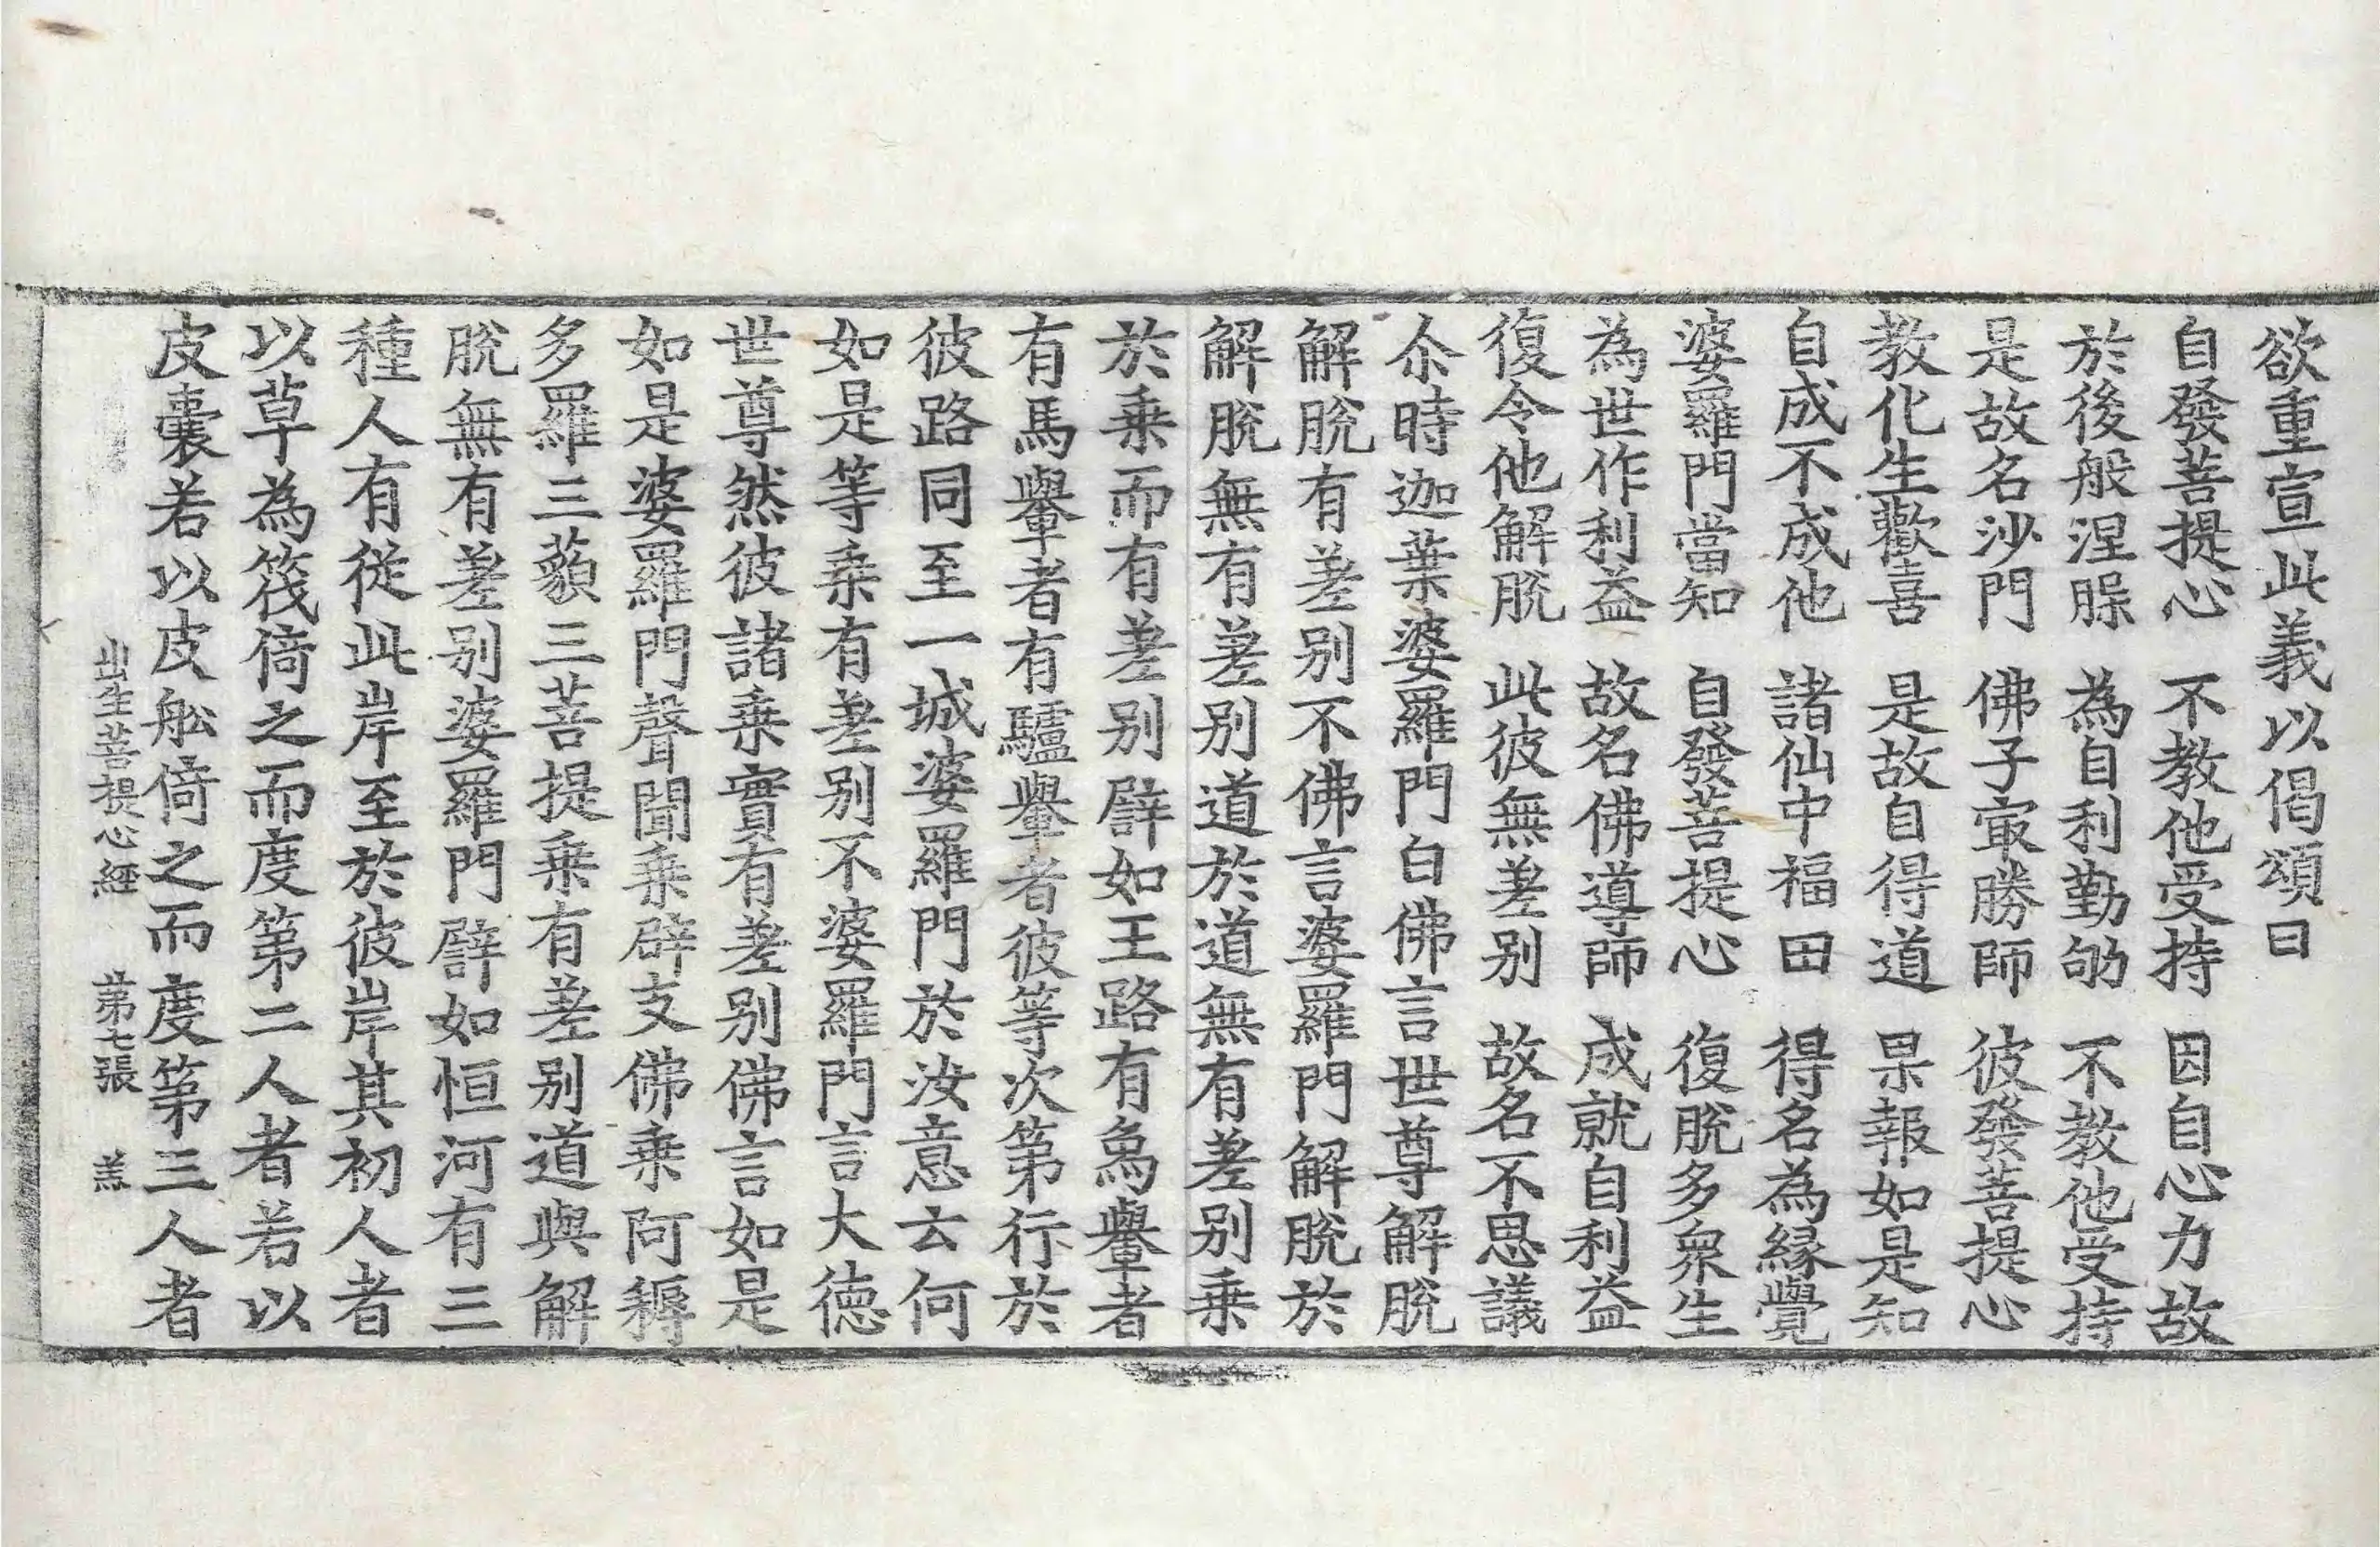 欲重宣此義以偈頌曰
自發菩提心 不教他受持 因自心力故
於後般涅槃 為自利勤劬 不教他受持
是故名沙門 佛子㝡勝師 彼發菩提心
教化生歡喜 是故自得道 果報如是知
自成不成他 諸仙中福田 得名為緣覺
婆羅門當知 自發菩提心 復脫多衆生
為世作利益 故名佛導師 成就自利益
復令他解脫 此彼無差別 故名不思議
尒時迦葉婆羅門白佛言世尊解脫
解脫有差別不佛言婆羅門解脫於
解脫無有差別道於道無有差別乗
於乗而有差別譬如王路有象轝者
有馬轝者有驢轝者彼等次第行於
彼路同至一城婆羅門於汝意云何
如是等乗有差別不婆羅門言大德
世尊然彼諸乗實有差別佛言如是
如是婆羅門聲聞乗辟支佛乗阿耨
多羅三藐三菩提乗有差別道與解
脫無有差別婆羅門譬如恒河有三
種人有從此岸至於彼岸其初人者
以草為筏倚之而度第二人者若以
皮囊若以皮舩倚之而度第三人者
出生菩提心經 第七張 羔